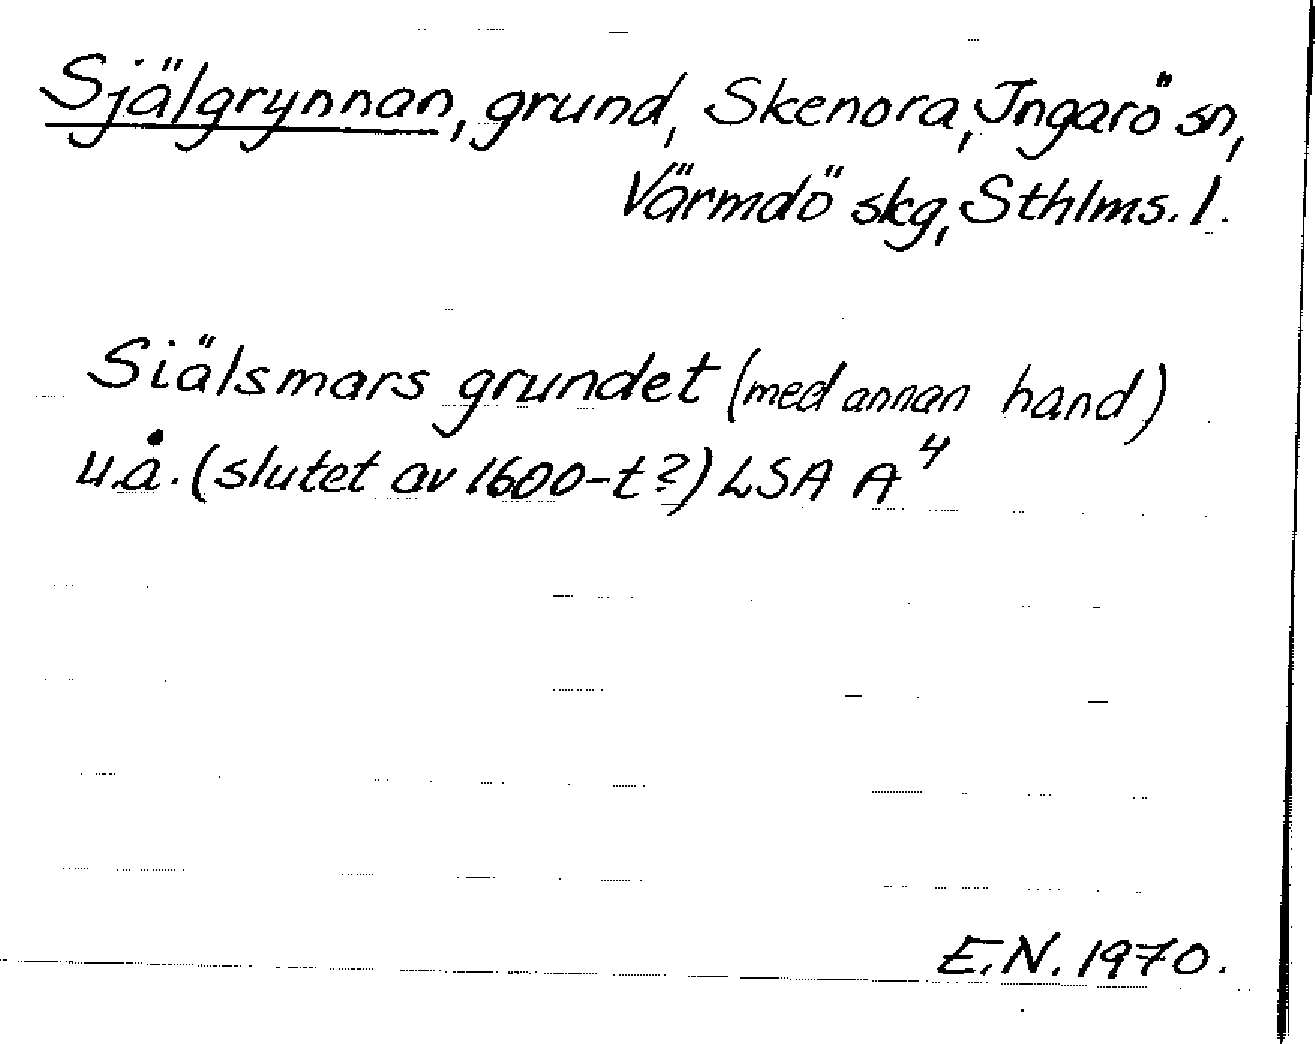 Själgrynnan, grund, Skenora, Ingarö sn,
Värmdö skg, Sthlms. l.
Siälsmars grundet (med annan hand)
u.å. (slutet av 1600-t?) LSA A⁴
E.N. 1970.